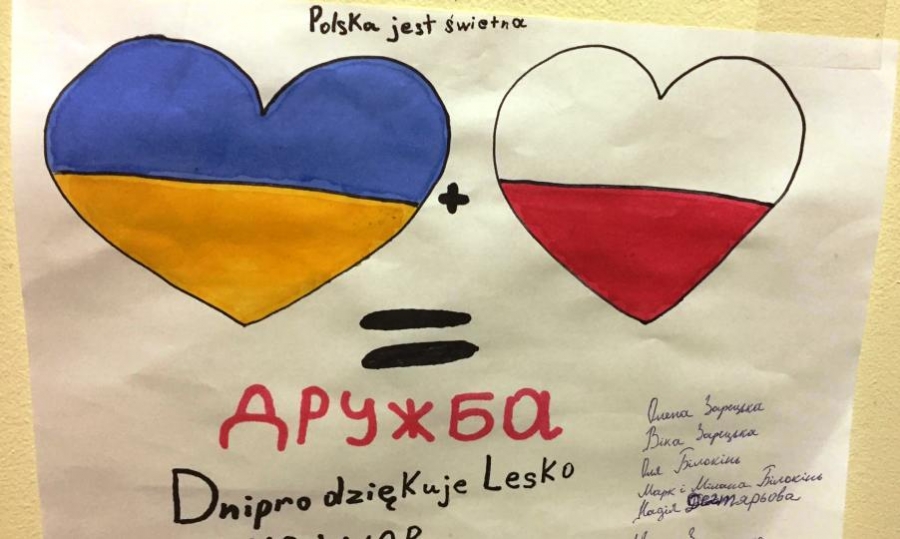 Polska jest świetna
+
=
ДРУЖБА
Dnipro dziękuje Lesko
Олена Зарецька
Віка Зарецька
Оля Білокінь
Марк і Мілана Білокінь
Надія Дегтярьова